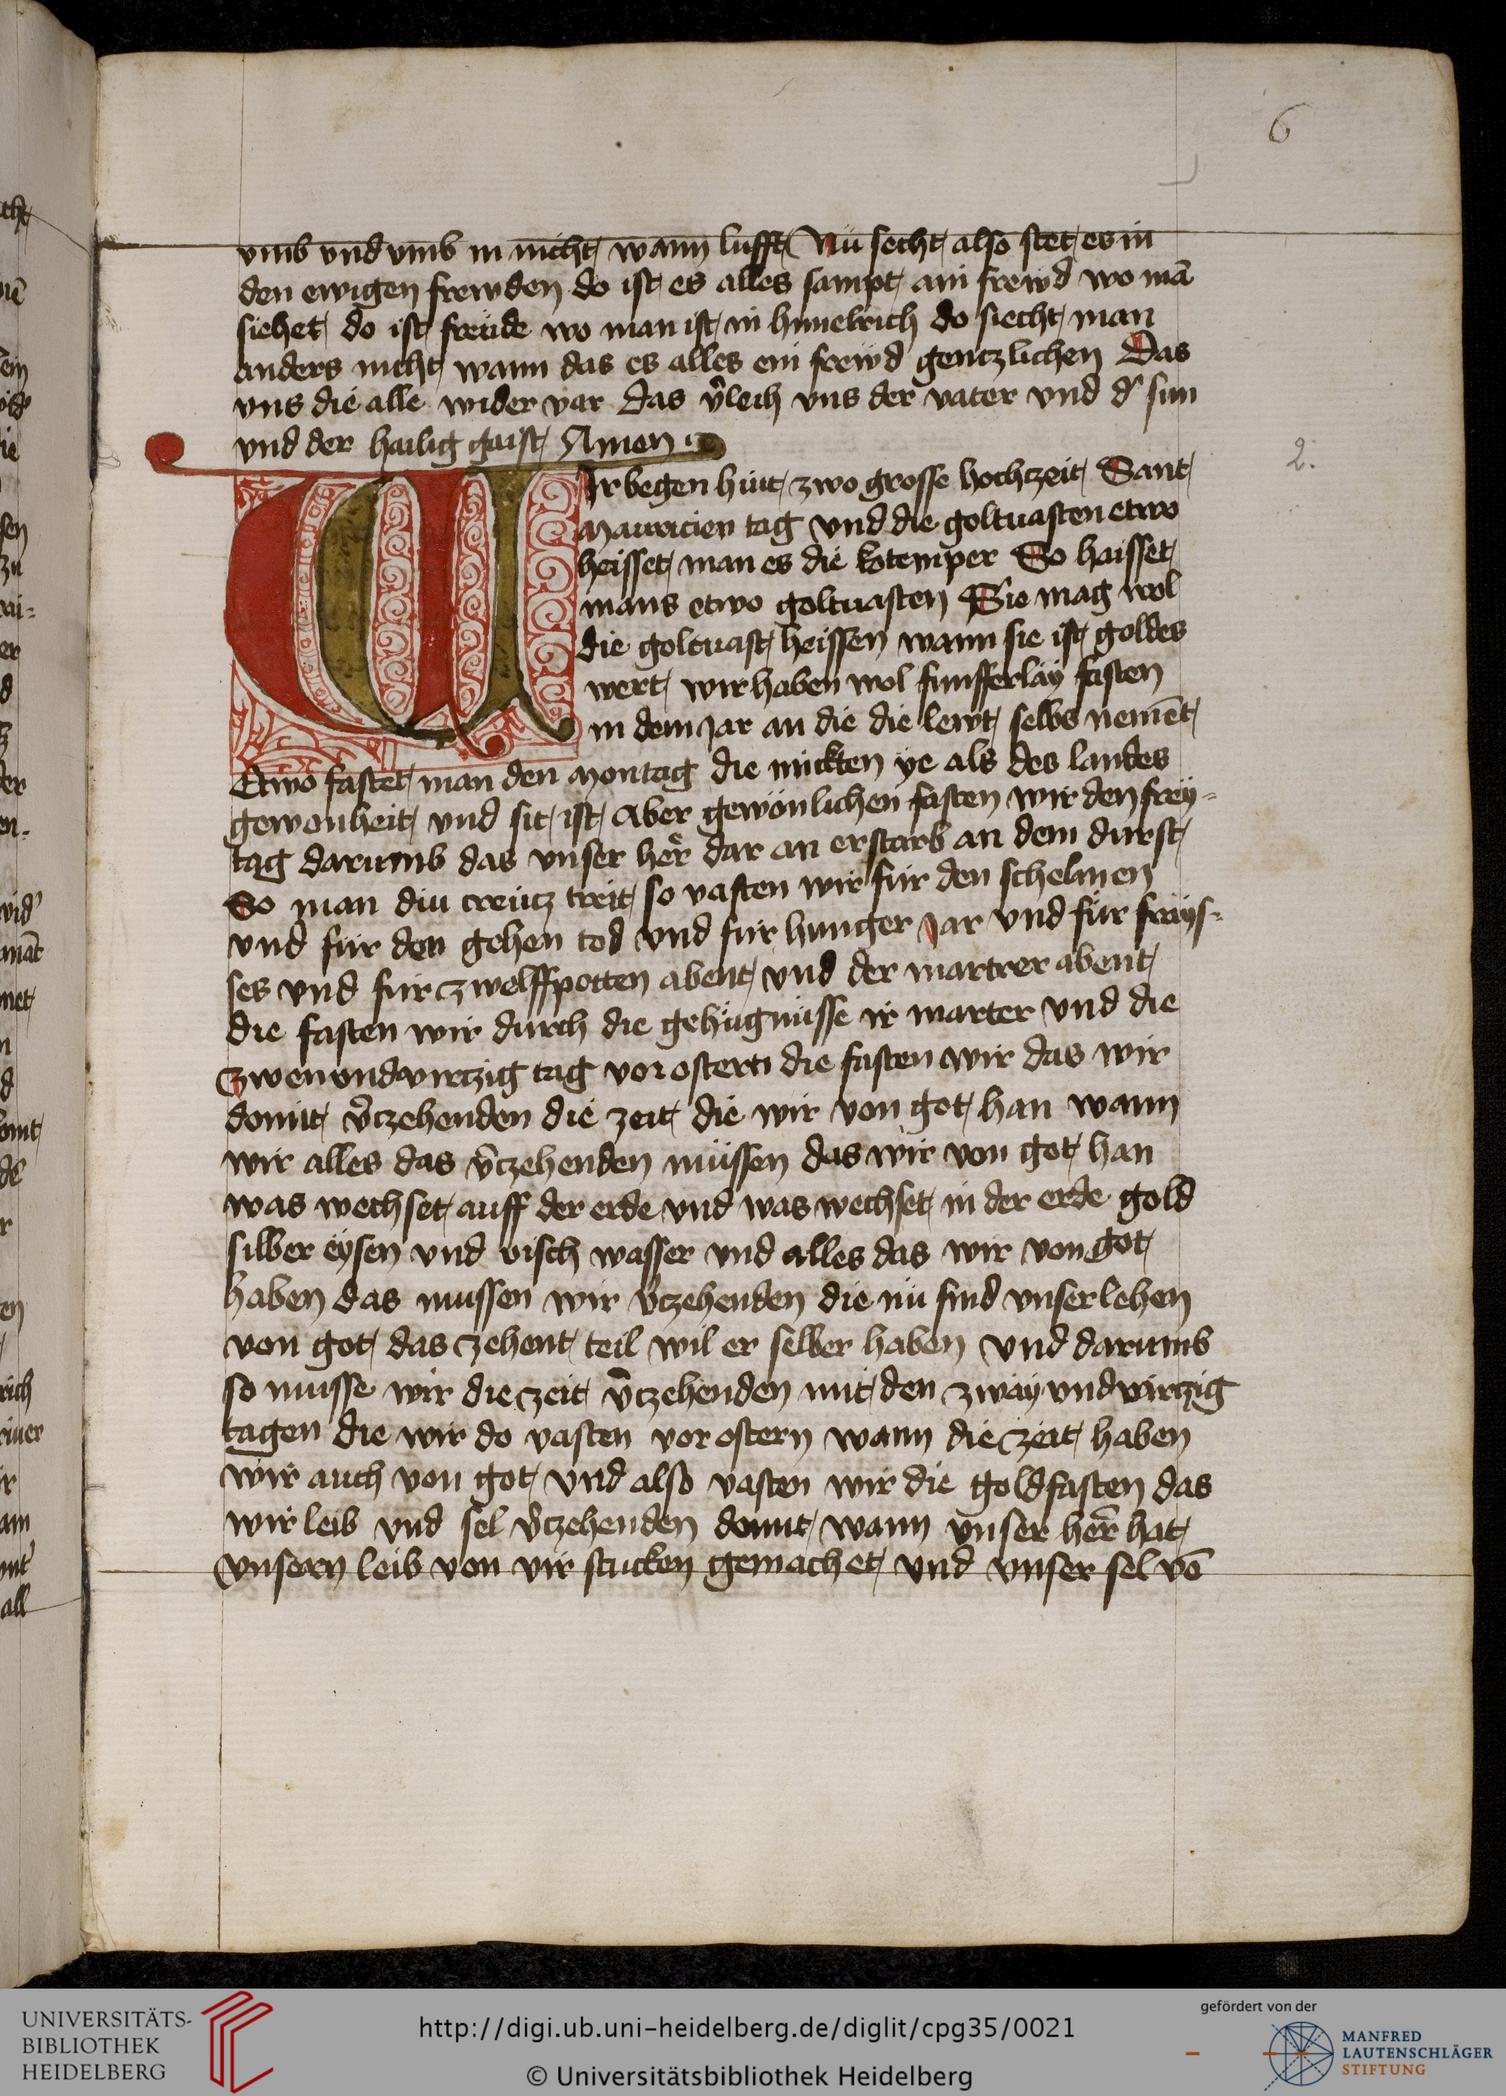 6
vmb vnd vmb in nicht wann lufft Nü secht also stet es in
den ewigen frewden do ist es alles sampt ain frewd wo mā
siehet do ist freüde wo man ist in himelrich do siecht man
anders nicht wann das es alles ein frewd gentzlichen Das
vns die alle wider var das v̄leich vns der vater vnd d' sun
vnd der hailig gaist Amen
2.
WIr begen hiut zwo grosse hochzeit Sant
Mauricien tag vnd die goltuasten etwo
heisset man es die kotemper So haisset
mans etwo goltuasten Sie mag wol
die goltuast heissen wann sie ist goldes
wert wir haben wol funfferlay fasten
in dem Jar an die die lewt selbs nement
Etwo fastet man den Montag die mickten ye als des landes
gewonheit vnd sit ist Aber gewönlichen fasten wir den frey-
tag darumb das vnser her̄ dar an erstarb an dem durst
So man diu creutz treit so vasten wir für den schelmen
vnd für den gehen tod vnd für hunger Jar vnd für frays-
ses vnd für zwelffpotten abent vnd der martrer abent
die fasten wir durch die gehügnüsse ir marter vnd die
zwenvndvirtzig tag vor ostern die fasten wir das wir
domit v̄czehenden die zeit die wir von got han wann
wir alles das v̄czehenden müssen das wir von got han
was wechset auff der erde vnd was wechset in der erde gold
silber eysen vnd visch wasser vnd alles das wir von got
haben das mussen wir v̄czehenden die nü sind vnser lehen
von got das zehent teil wil er selber haben vnd darumb
so musse wir die zeit v̄czehenden mit den zwayvndvirtzig
tagen die wir do vasten vor ostern wann die zeit haben
wir auch von got vnd also vasten wir die goldfasten das
wir leib vnd sel v̄czehenden domit wann vnser her̄ hat
vnsern leib von vir stucken gemachet vnd vnser sel vō
UNIVERSITÄTS-
BIBLIOTHEK
HEIDELBERG
http://digi.ub.uni-heidelberg.de/diglit/cpg35/0021
© Universitätsbibliothek Heidelberg
gefördert von der
MANFRED
LAUTENSCHLÄGER
STIFTUNG